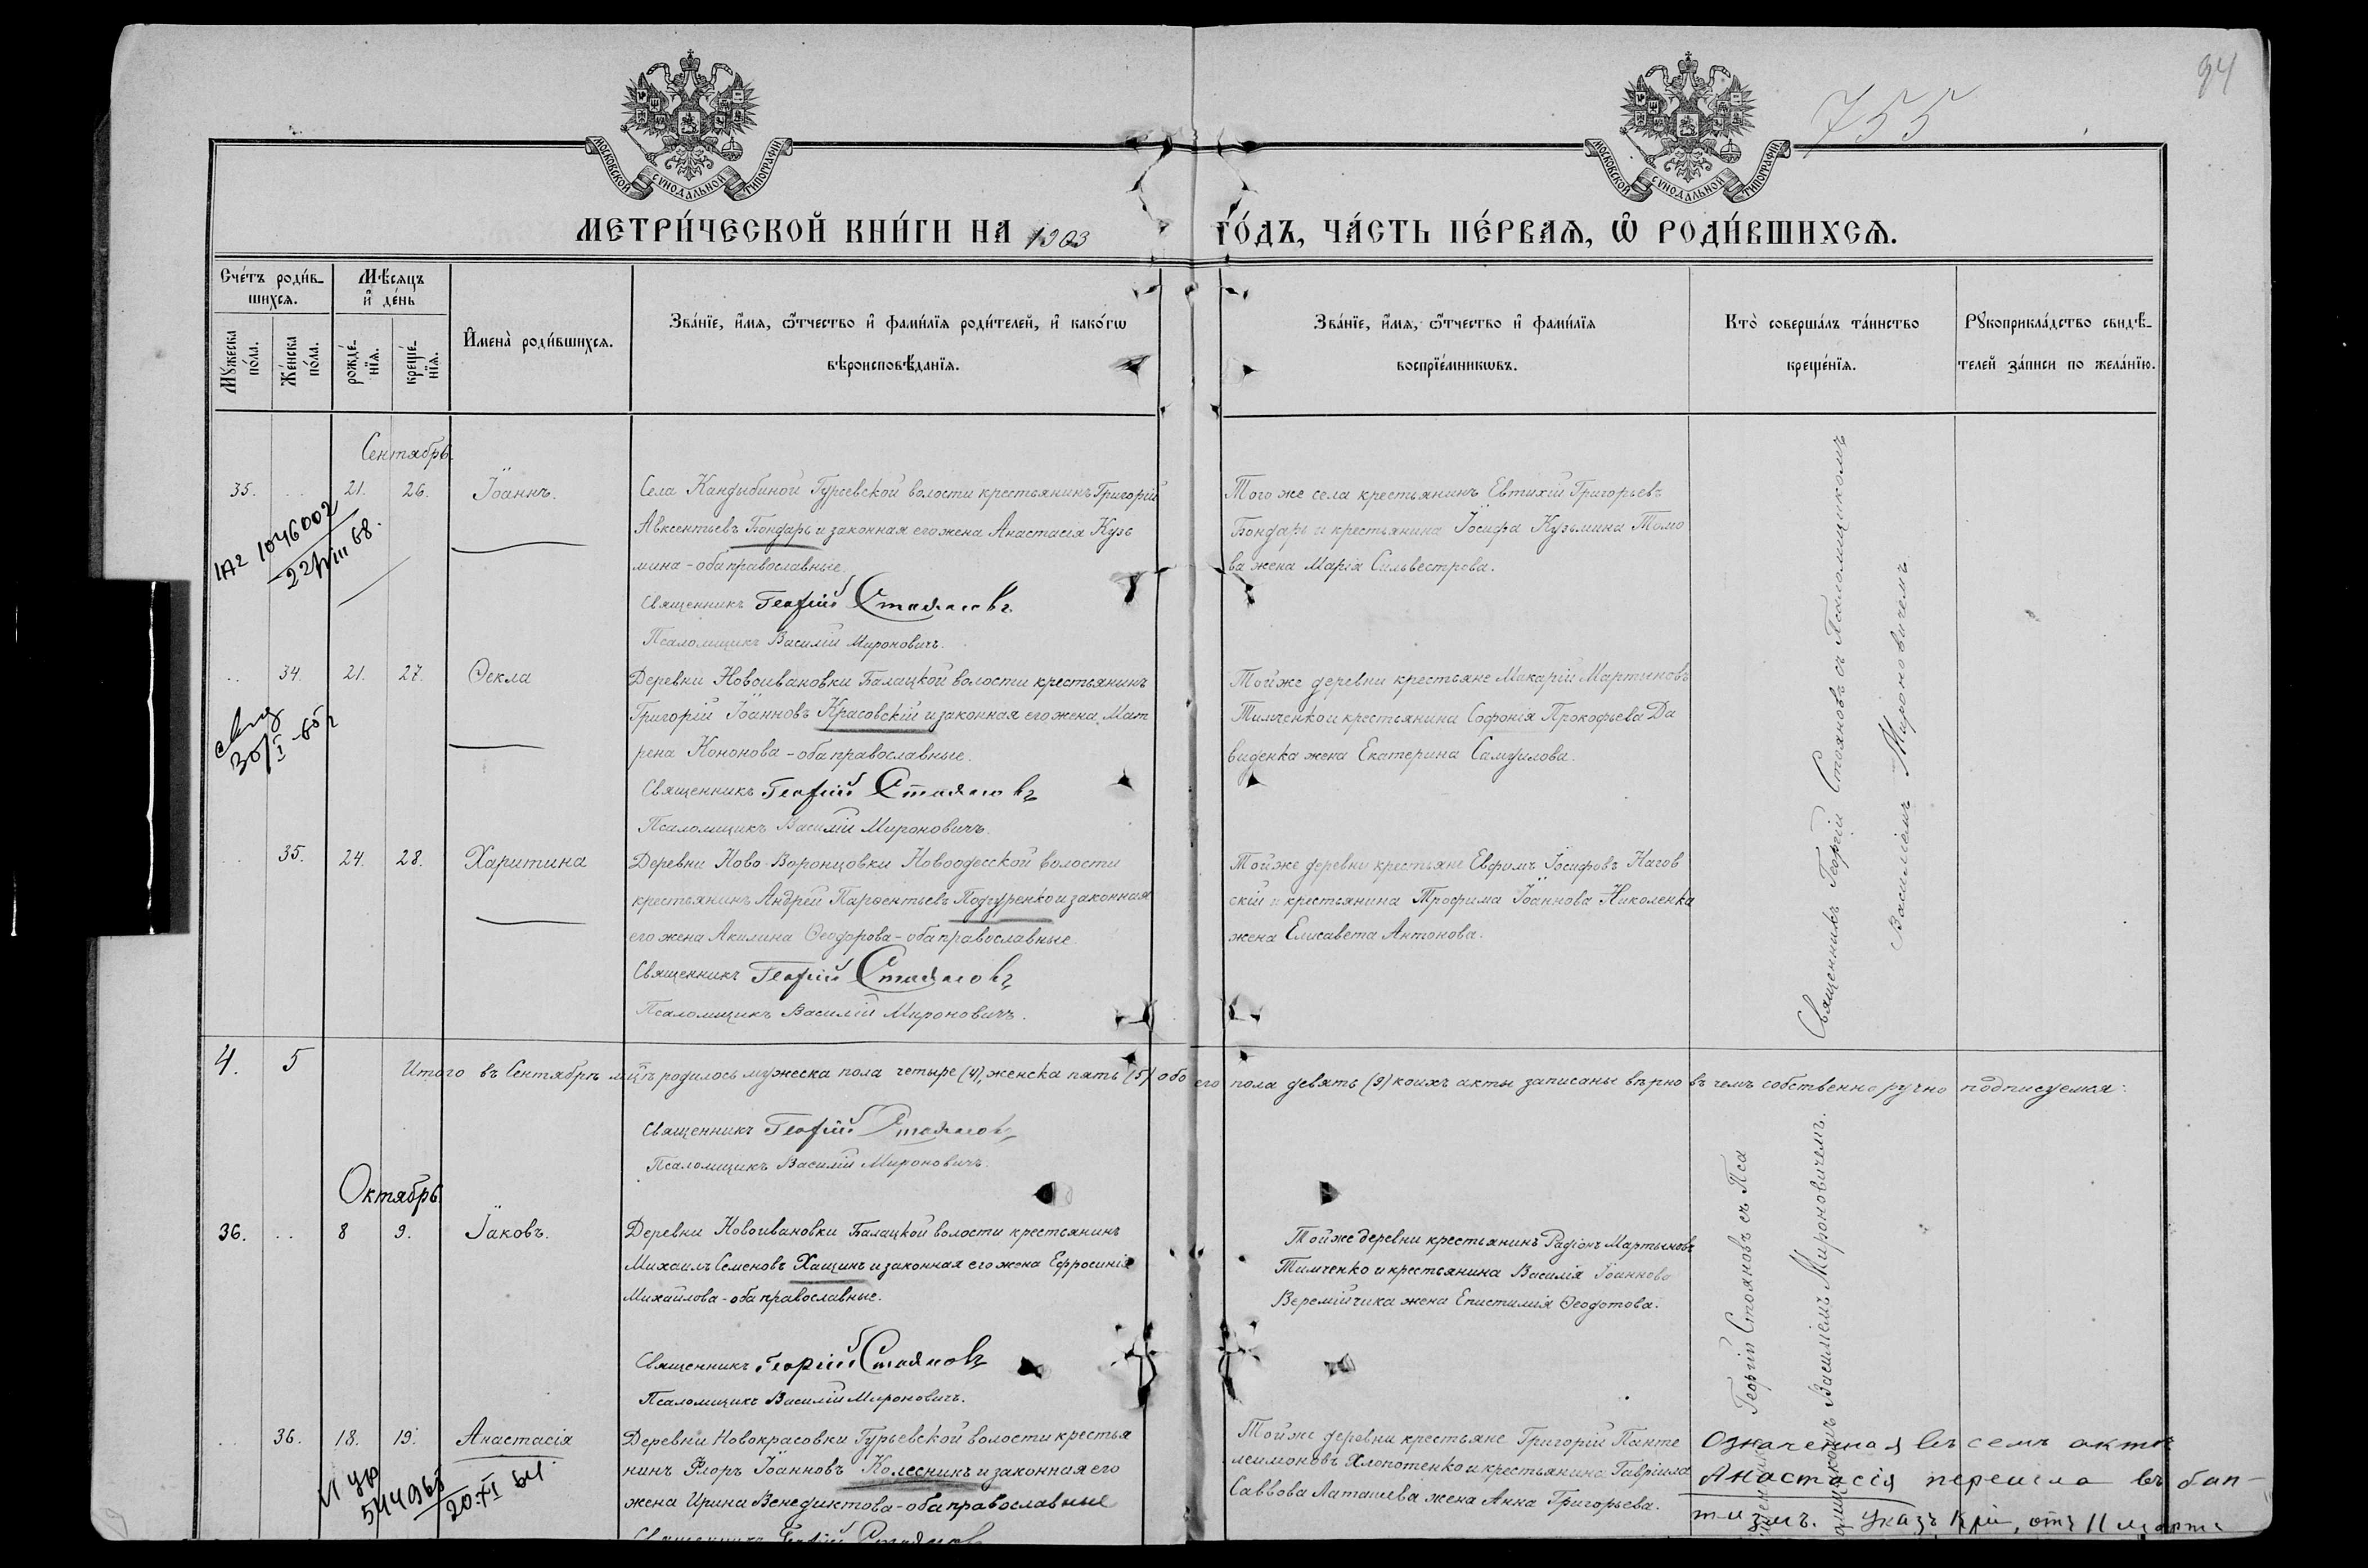 94
755
МОСКОВСКОЙ СѴНОДАЛЬНОЙ ТИПОГРАФІИ
МОСКОВСКОЙ СѴНОДАЛЬНОЙ ТИПОГРАФІИ
МЕТРИ́ЧЕСКОЙ КНИ́ГИ НА 1903 ГО́ДЪ, ЧА́СТЬ ПЕ́РВАѦ, Ѡ҆ РОДИ́ВШИХСѦ.
Сче́тъ роди́в-
шихсѧ.
Мꙋ́жеска
по́ла.
Же́нска
по́ла.
Мѣ́сѧцъ
и҆ де́нь
рожде́-
нїѧ.
креще́-
нїѧ.
И҆мена̀ роди́вшихсѧ.
Зва́нїе, и҆́мѧ, ѻ҆́тчество и҆ фами́лїѧ роди́телей, и҆ како́гѡ
вѣроисповѣ́данїѧ.
Зва́нїе, и҆́мѧ, ѻ҆́тчество и҆ фами́лїѧ
воспрїе́мникѡвъ.
Кто̀ соверша́лъ та́инство
креще́нїѧ.
Рꙋкоприкла́дство свидѣ́-
телей за́писи по жела́нїю.
Сентябрь.
35. .. 21. 26. Іоаннъ.
Села Кандыбиной Гурьевской волости крестьянинъ Григорій
Авксентьевъ Бондарь и законная его жена Анастасія Кузь
мина - оба православные.
Священникъ Георгій Стояновъ
Псаломщикъ Василій Мироновичъ.
Того же села крестьянинъ Евтихій Григорьевъ
Бондарь и крестьянина Іосифа Кузьмина Томо
ва жена Марія Сильвестрова.
1А2 1046002
22/VIII 68.
.. 34. 21. 27. Ѳекла
Деревни Новоивановки Балацкой волости крестьянинъ
Григорій Іоанновъ Красовскій и законная его жена Мат
рена Кононова - оба православные.
Священникъ Георгій Стояновъ
Псаломщикъ Василій Мироновичъ.
Тойже деревни крестьяне Макарій Мартыновъ
Тимченко и крестьянина Софонія Прокофьева Да
виденка жена Екатерина Самуилова.
30/I -65 г
.. 35. 24. 28. Харитина
Деревни Ново-Воронцовки Новоодесской волости
крестьянинъ Андрей Парѳентьевъ Подгуренко и законная
его жена Акилина Ѳеодорова - оба православные
Священникъ Георгій Стояновъ
Псаломщикъ Василій Мироновичъ.
Тойже деревни крестьяне Евфимъ Іосифовъ Нагов
скій и крестьянина Трофима Іоаннова Николенка
жена Елисавета Антонова.
Священникъ Георгій Стояновъ съ Псаломщикомъ
Василіемъ Мироновичемъ
4. 5
Итого въ Сентябрѣ м-цѣ родилось мужеска пола четыре (4), женска пять (5) обоего пола девять (9) коихъ акты записаны вѣрно въ чемъ собственноручно подписуемся:
Священникъ Георгій Стояновъ
Псаломщикъ Василій Мироновичъ.
Октябрь
36. .. 8 9. Іаковъ.
Деревни Новоивановки Балацкой волости крестьянинъ
Михаилъ Семеновъ Хащинъ и законная его жена Ефросинія
Михайлова - оба православные.
Священникъ Георгій Стояновъ
Псаломщикъ Василій Мироновичъ.
Тойже деревни крестьянинъ Радіонъ Мартыновъ
Тимченко и крестьянина Василія Іоаннова
Веремійчика жена Епистимія Ѳеодотова.
Георгій Стояновъ съ Пса
Василіемъ Мироновичемъ.
.. 36. 18. 19. Анастасія
Деревни Новокрасовки Гурьевской волости крестья
нинъ Флоръ Іоанновъ Колесникъ и законная его
жена Ирина Венедиктова - оба православные
Священникъ Георгій Стояновъ
Тойже деревни крестьяне Григорій Панте
леимоновъ Хлопотенко и крестьянина Гавріила
Саввова Латашева жена Анна Григорьева.
Означенная въ семъ актѣ
Анастасія перешла въ бап-
тизмъ. Указъ от 11 марта
544963
20.XI 64.